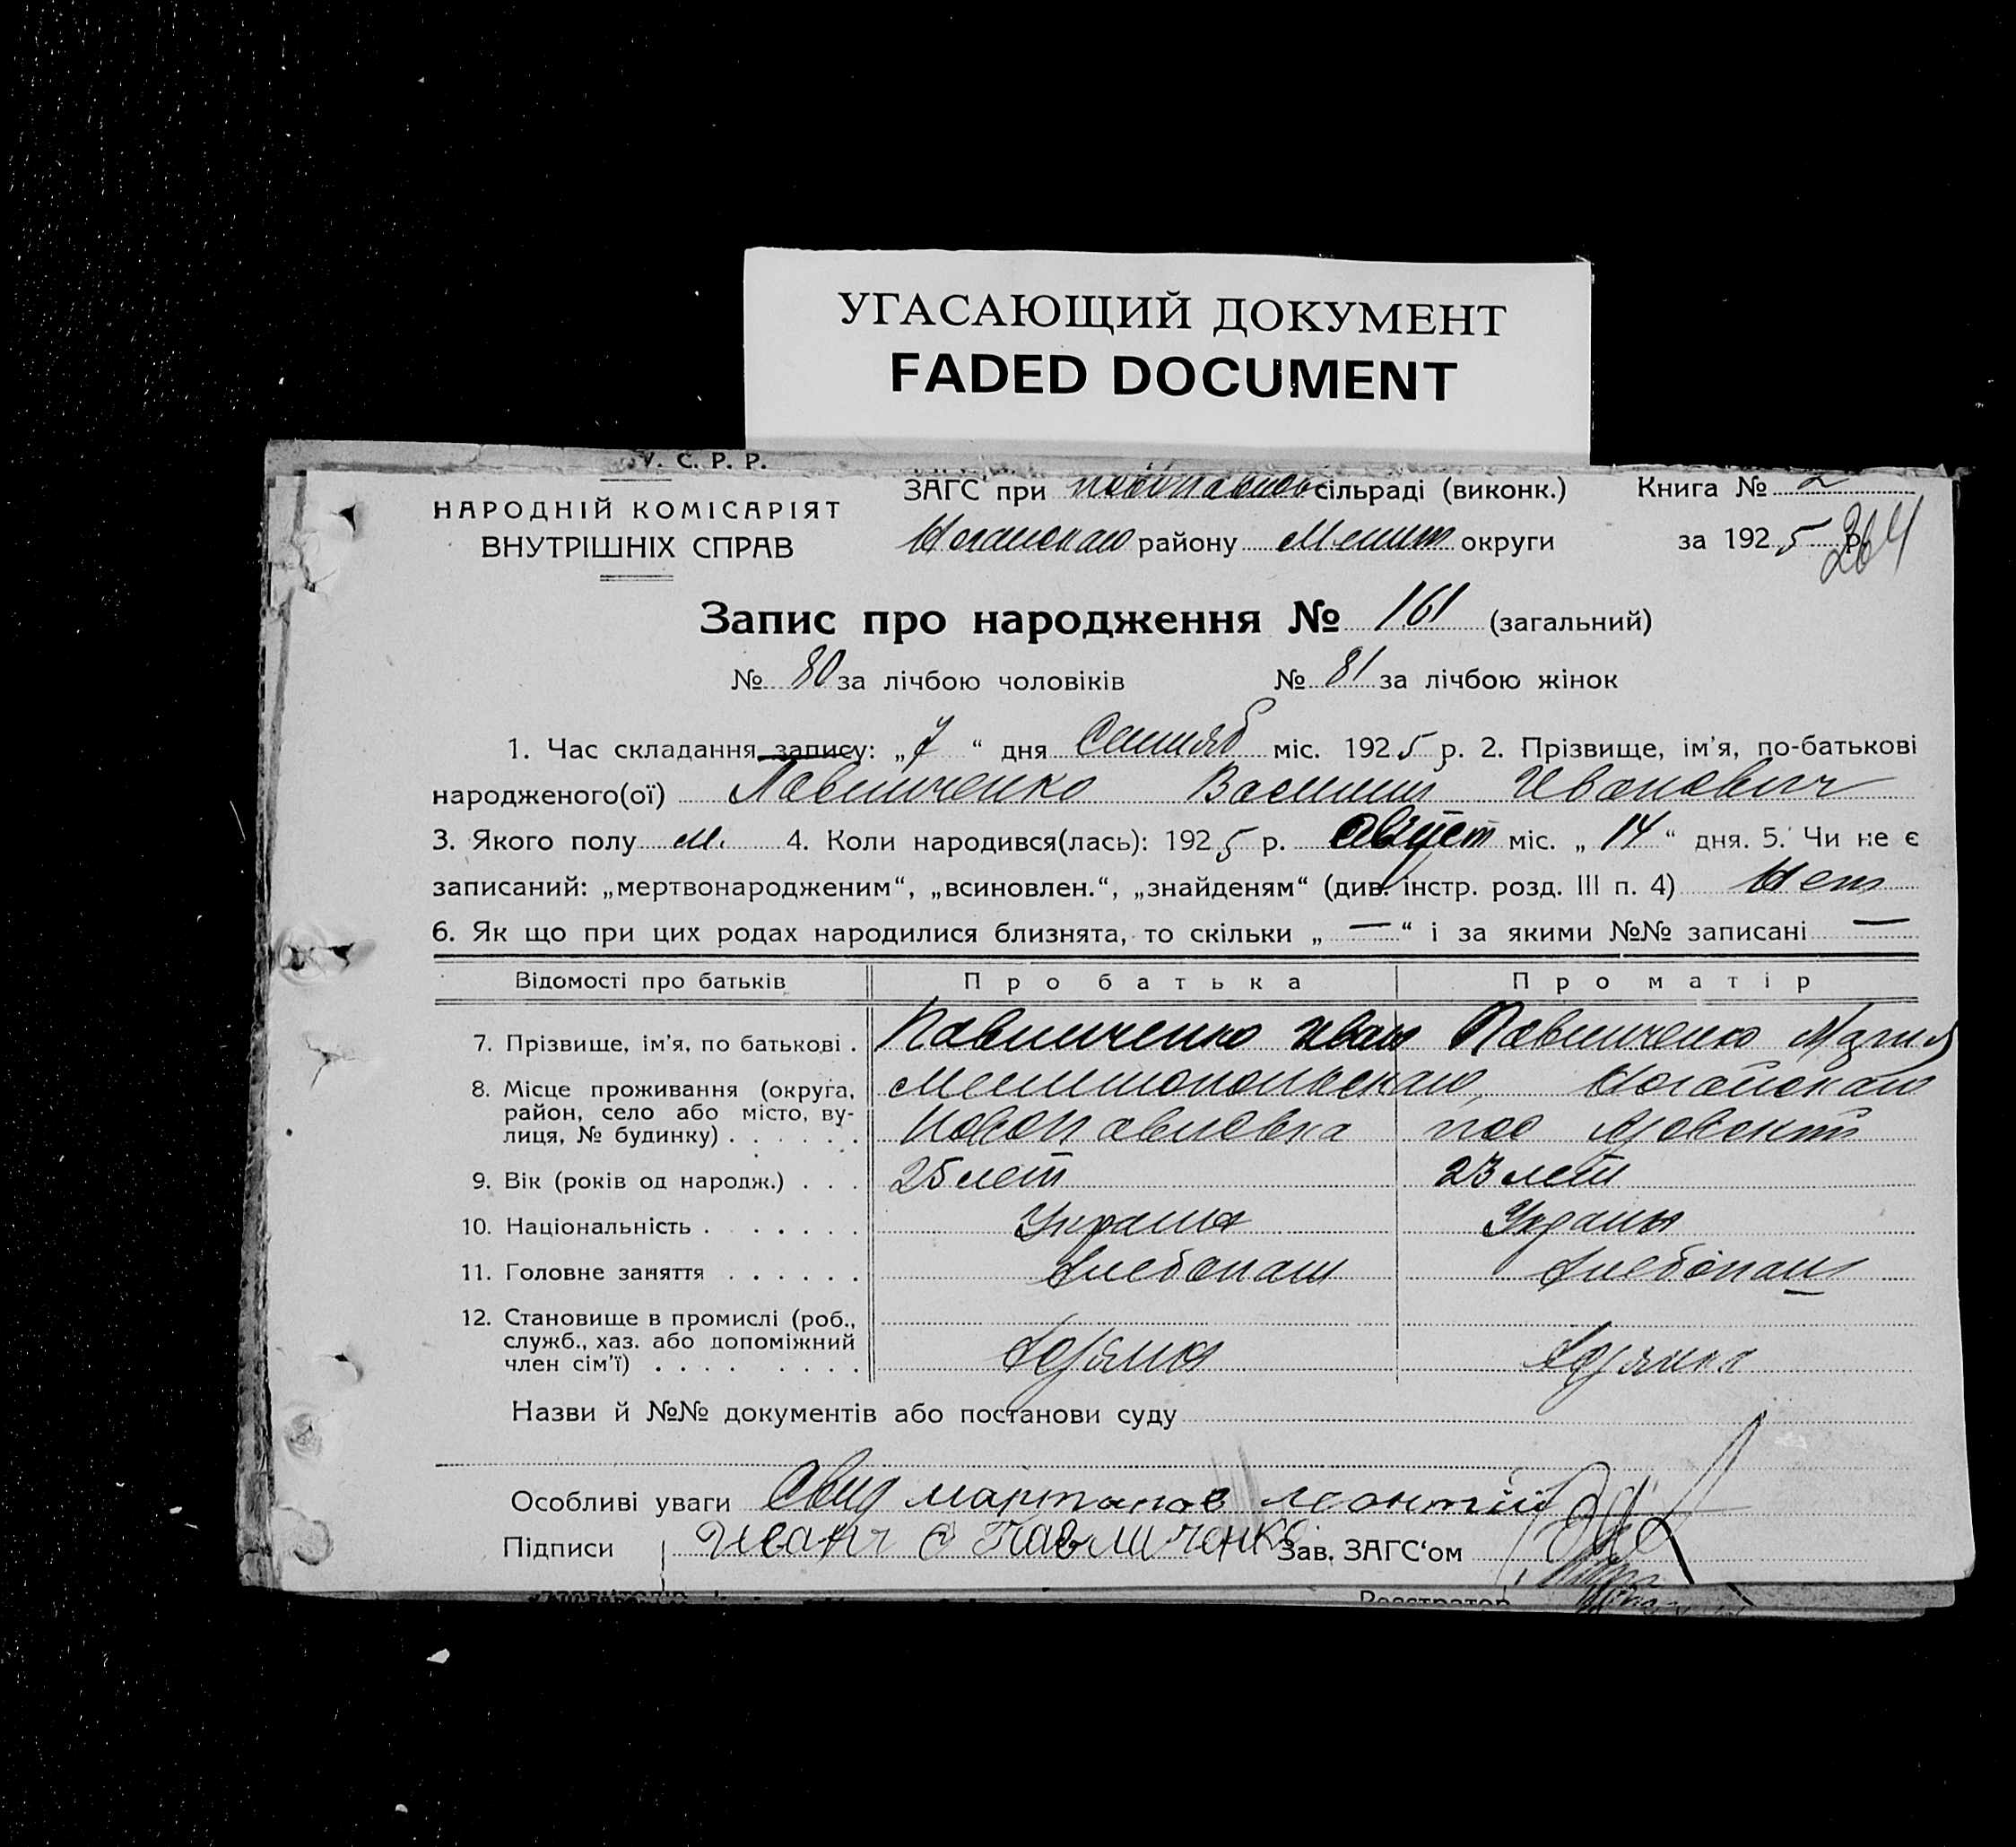 УГАСАЮЩИЙ ДОКУМЕНТ
FADED DOCUMENT
У. С. Р. Р.
НАРОДНІЙ КОМІСАРІЯТ
ВНУТРІШНІХ СПРАВ
ЗАГС при сільраді (виконк.) Книга № 2
району Мелит округи за 1925 р.
264
Запис про народження № 161 (загальний)
№ 80 за лічбою чоловіків № 81 за лічбою жінок
1. Час складання запису: „7“ дня Сентяб міс. 1925 р. 2. Прізвище, ім'я, по-батькові
народженого(ої) Павличенко Василий Иванович
3. Якого полу м. 4. Коли народився(лась): 1925 р. Август міс. „14“ дня. 5. Чи не є
записаний: „мертвонародженим“, „всиновлен.“, „знайденям“ (див. інстр. розд. III п. 4) Нет
6. Як що при цих родах народилися близнята, то скільки „ — “ і за якими №№ записані —
Відомості про батьків Про батька Про матір
7. Прізвище, ім'я, по батькові . Павличенко Иван Павличенко
8. Місце проживання (округа, район, село або місто, вулиця, № будинку) . . . . . . Мелитопольскаго Ногайскаго
Новопавловка
9. Вік (років од народж.) . . . 25 лет 23 лет
10. Національність . . . . . . . Украин Украин
11. Головне заняття . . . . . . Хлебопаш Хлебопаш
12. Становище в промислі (роб., служб., хаз. або допоміжний член сім'ї) . . . . . . . .
Назви й №№ документів або постанови суду
Особливі уваги
Підписи Иван Павличенко Зав. ЗАГС'ом
Реєстратор